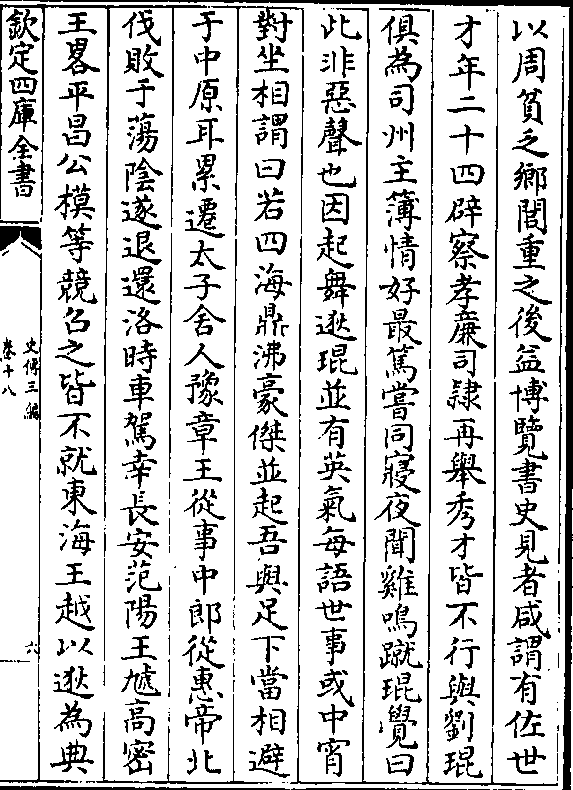 以周貧乏鄉閭重之後益博覽書史見者咸謂有佐世
才年二十四辟察孝亷司隸再舉秀才皆不行與劉琨
俱為司州主簿情好最篤嘗同寢夜聞雞鳴蹴琨覺曰
此非惡聲也因起舞逖琨並有英氣每語世事或中宵
對坐相謂曰若四海鼎沸豪傑並起吾與足下當相避
于中原耳累遷太子舍人豫章王從事中郎從惠帝北
伐敗于蕩陰遂退還洛時車駕幸長安范陽王虓高密
王畧平昌公模等競召之皆不就東海王越以逖為典
欽定四庫全書
史傳三編
卷十八
六